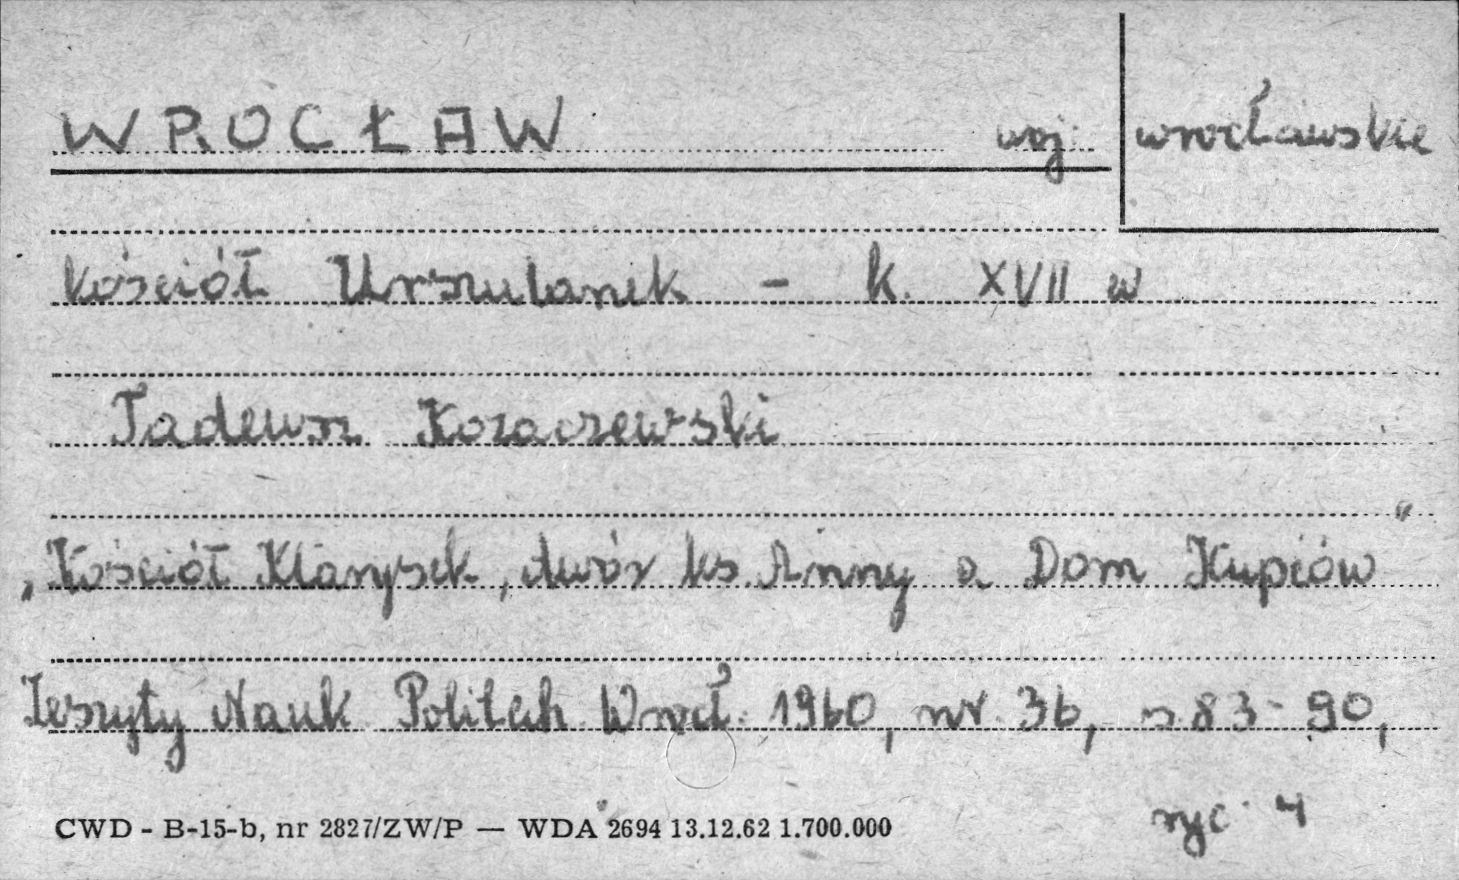 WROCŁAW woj. wrocławskie
kościół Urszulanek - k. XVII w
Tadeusz Kozaczewski
„Kościół Klarysek, dwór ks. Anny a Dom Kupców"
Zeszyty Nauk Politech Wrocł. 1960, nr. 36, s. 83-90,
ryc. 4
CWD - B-15-b, nr 2827/ZW/P — WDA 2694 13.12.62 1.700.000